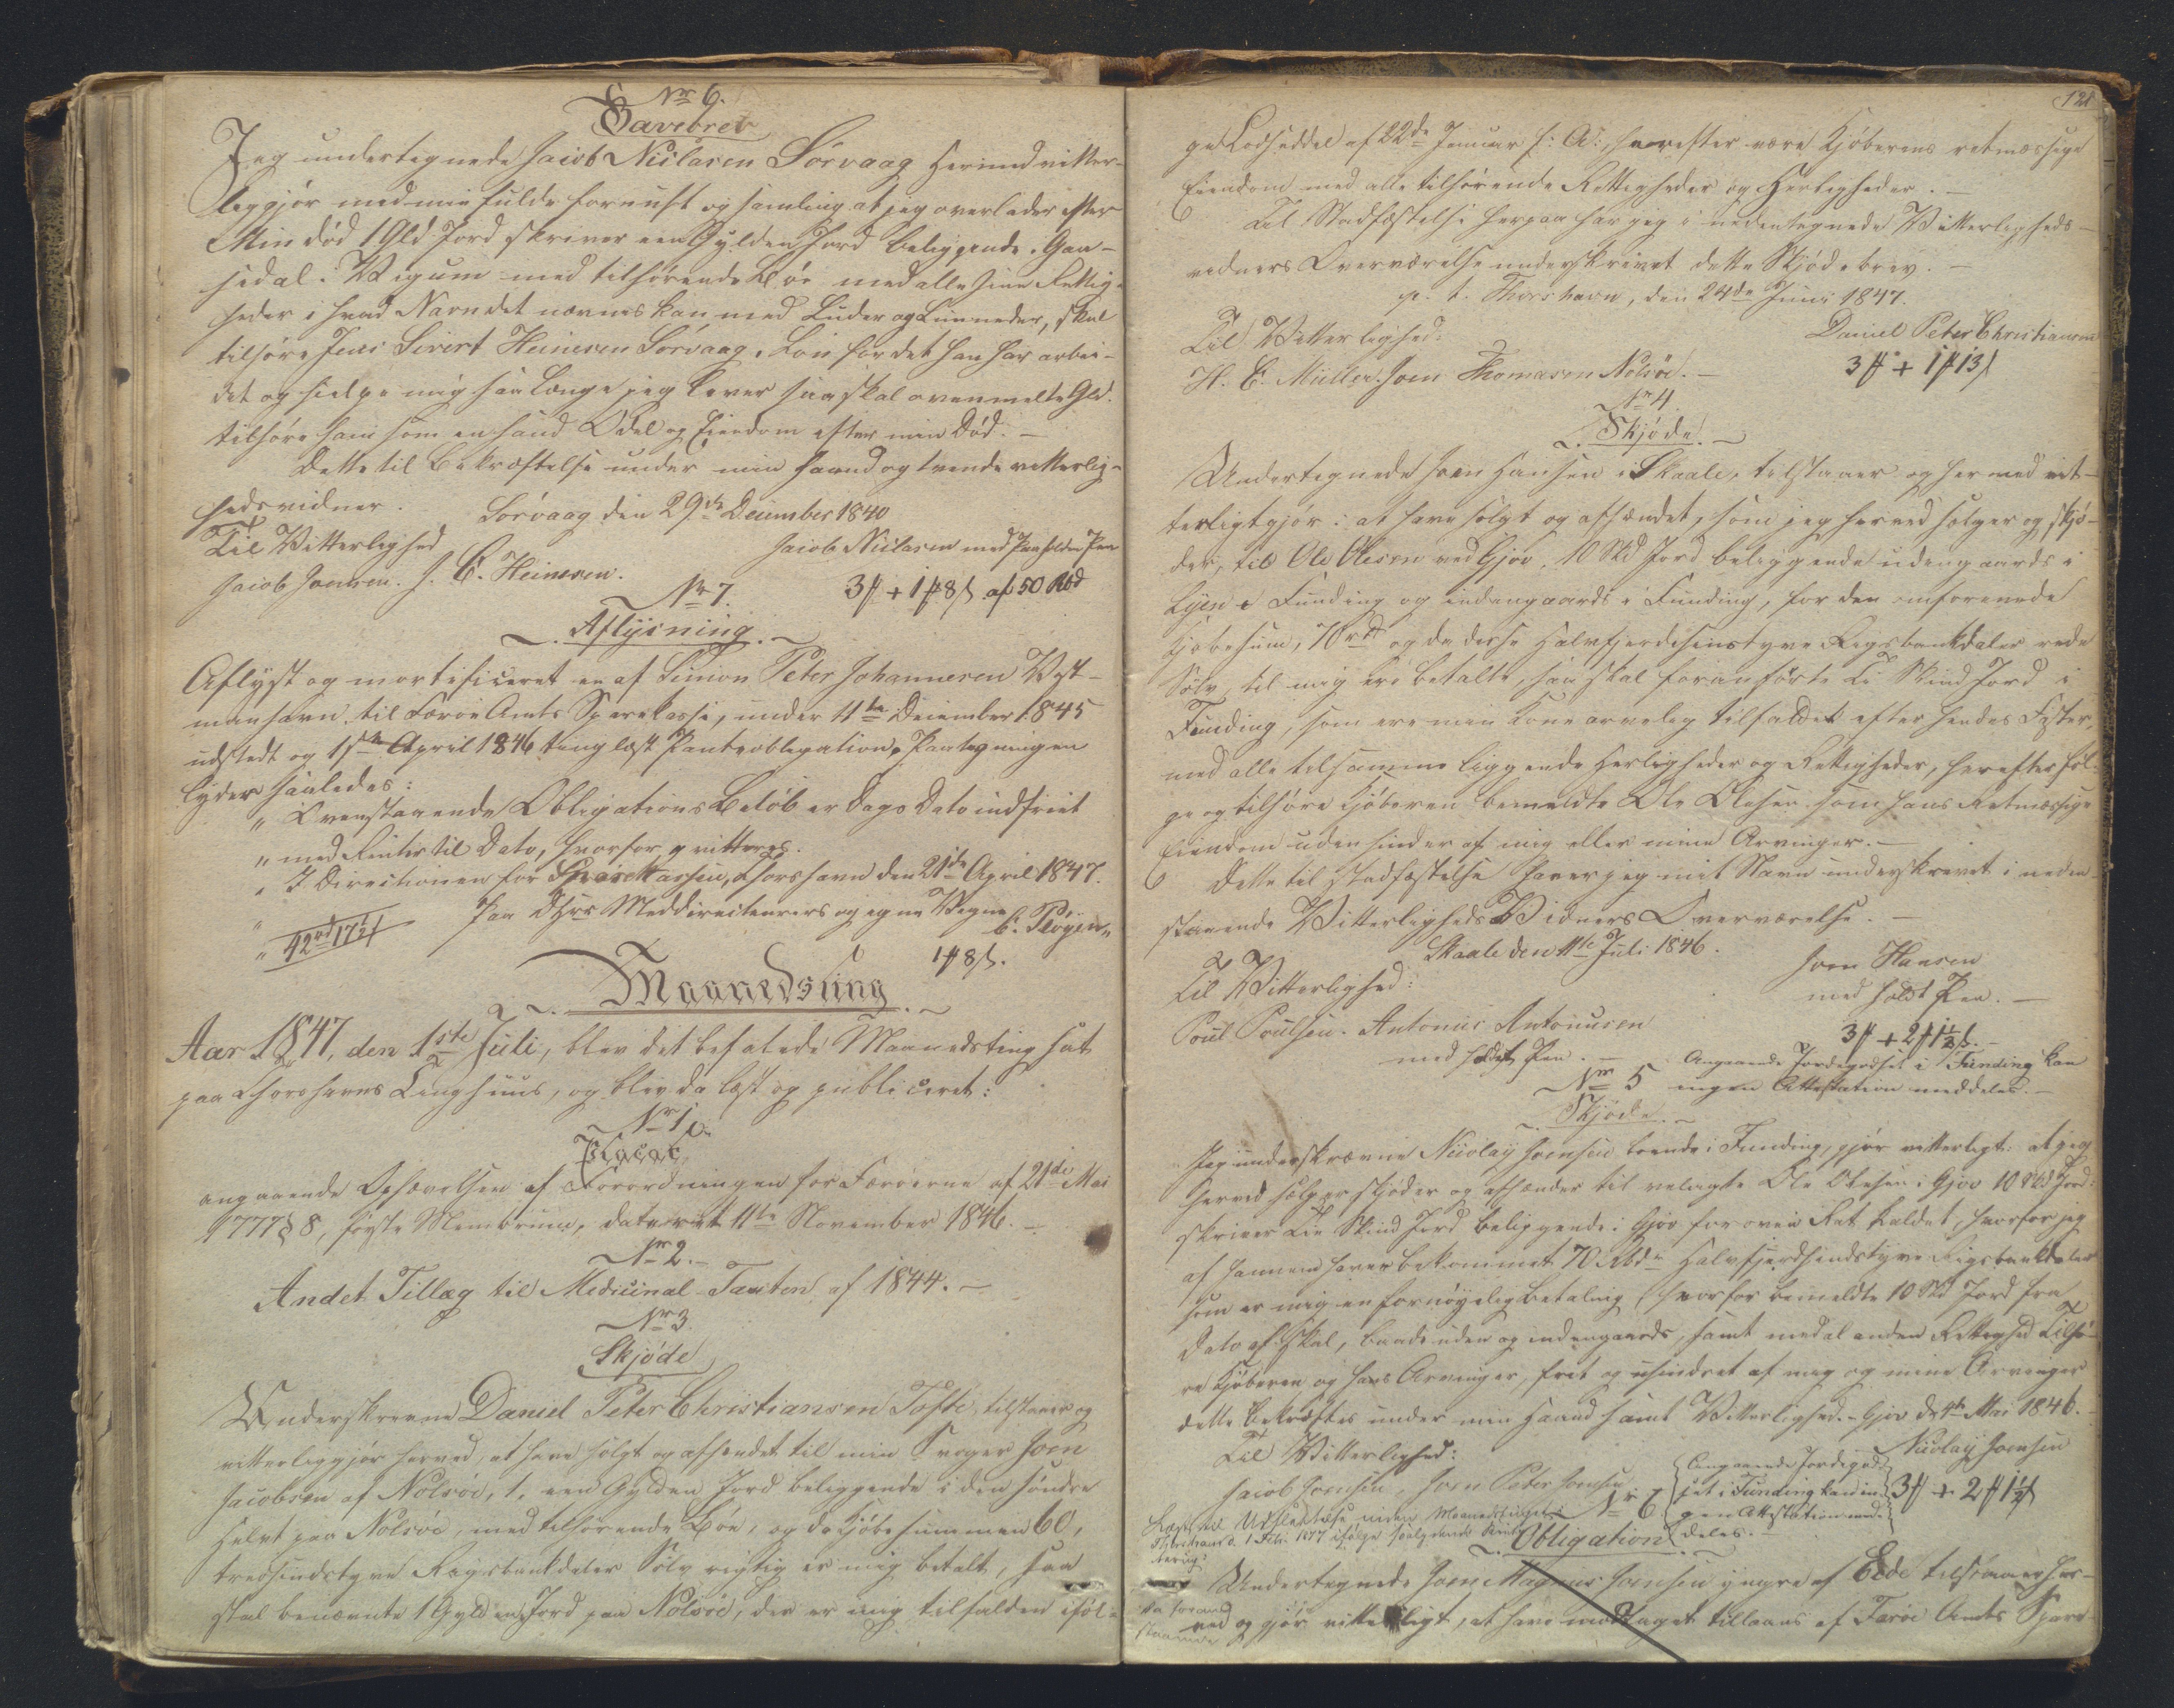 No 6.
Gavebrev
Jeg undertegnede Jacob Niclasen Sörvaag herved vitter-
liggjör med min fulde fornuft og samling at jeg overlader efter
Min död 1 Gld Jord skriver een Gylden Jord beliggende i Gaa-
sedal i Vaagum med tilhörende Böe med alle sine Rettig-
heder i hvad Navn det nævnes kan med Luder og Lunneder, skal
tilhöre Jens Sivert Heinesen Sörvaag i Lön for det han har arbei-
det og hielpe mig saa længe jeg lever saa skal ovenmelte Gld.
tilhöre ham som en sand Odel og Eiendom efter min Död. —
Dette til Bekræftelse under min Haand og tvende vitterlig-
hedsvidner. Sörvaag den 29de December 1840
Til Vitterlighed Jacob Niclasen med paaholden Pen
Jacob Joensen. J. C. Heinesen.
3 # + 1 # 8 ß af 50 Rbd
No 7.
Aflysning.
Aflyst og mortificeret en af Simon Peter Johannesen Vest-
manhavn til Færöe Amts Sparekasse, under 11te December 1845
udstedt og 1ste April 1846 tinglæst Pantobligation. Paategningen
lyder saaledes:
" Ovenstaaende Obligations Belöb er Dags Dato indfriet
" med Renter til Dato, hvorfor qvitteres.
" I Directionen for Sparekassen, Thorshavn den 21de April 1847.
" Paa DHrs Meddirecteurers og egne Vegne
C. Plöyen "
" 42rd 17½ ß
1 # 8 ß.
Maanedsting
Aar 1847, den 1ste Juli, blev det befalede Maanedsting sat
paa Thorshavns Tinghuus, og blev da læst og publiceret:
No 1
Placat
angaaende Ophævelsen af Forordningen for Færöerne af 21de Mai
1777 § 8, förste Membrum, dateret 11te November 1846. —
No 2.
Andet Tillæg til Medicinal-Taxten af 1844. —
No 3.
Skjöde
Underskrevne Daniel Peter Christiansen Tofte, tilstaaer og
vitterliggjör herved, at have solgt og afhændet til min Svoger Joen
Jacobsen af Nolsöe, 1, een Gylden Jord beliggende i den söndre
Helvt paa Nolsöe, med tilhörende Böe, og da Kjöbesummen 60,
tresindstyve Rigsbankdaler Sölv rigtig er mig betalt, saa
skal benævnte 1 Gylden Jord paa Nolsöe, der er mig tilfalden ifölge
121
ge Lodseddel af 22de Januar f: A:, herefter være Kjöberens retmæssige
Eiendom med alle tilhörende Rettigheder og Herligheder. —
Til Stadfæstelse herpaa har jeg i nedentegnede Vitterligheds-
vidners Overværelse underskrevet dette Skjödebrev. —
p. t. Thorshavn, den 24de Juni 1847.
Til Vitterlighed: Daniel Peter Christiansen
H. C. Müller. Joen Thomasen Nolsöe. — 3 # + 1 # 13 ß
No 4.
Skjöde.
Undertegnede Joen Hansen i Skaale, tilstaaer og hermed vit-
terligtgjör: at have solgt og afhændet, som jeg herved sælger og skjö-
der, til Ole Olesen ved Gjov, 10 Skd Jord beliggende udengaards i
Lyen i Funding og indengaards i Funding, for den omforenede
Kjöbesum, 70rd og da disse Halvfjerdesindstyve Rigsbankdaler rede
Sölv, til mig ere betalte, saa skal foranförte Ti Skind Jord i
Funding, som ere min Kone arvelig tilfaldet efter hendes Foster,
med alle tilsamme liggende Herligheder og Rettigheder, herefter föl-
ge og tilhöre Kjöberen bemeldte Ole Olesen som hans Retmæssige
Eiendom uden hinder af mig eller mine Arvinger. —
Dette til stadfæstelse haver jeg mit Navn underskrevet i neden-
staaende Vitterligheds Vidners Overværelse. —
Skaale den 11te Juli 1846.
Til Vitterlighed: Joen Hansen
med holdt Pen. —
Poul Poulsen. Antonius Antoniusen
med holdt Pen. — 3 # + 2 # 1½ ß. —
Angaaende Jordegodset i Funding kan
ingen Attestation meddeles. —
No 5
Skjöde.
Jeg underskrevne Nicolay Joensen boende i Funding, gjör vitterligt: at jeg
herved sælger skjöder og afhænder til velagte Ole Olesen i Gjov 10 Skd Jord:
skriver Tie Skind Jord beliggende i Gjov for oven Ret kaldet, hvorfor jeg
af hannem haver bekommet 70 Rbdr Halvfjerdsindstyve Rigsbankdaler
som er mig en fornöyelig Betaling, hvorfor bemeldte 10 Skd Jord fra
Dato af skal, baade uden og indengaards, samt med al anden Rettighed Tilhö-
re Kjöberen og hans Arvinger, frit og uhindret af mig og mine Arvinger
dette bekræftes under min Haand samt Vitterlighed. — Gjov d: 4de Mai 1846.
Til Vitterlighed: Nicolaij Joensen
Jacob Joensen, Joen Peter Joensen
Angaaende Jordegod-
set i Funding kan in-
gen Attestation med-
deles.
3 # + 2 # 1½ ß
No 6
Obligation
Læst til Udslettelse inden Maanedstinget i
Thorshavn d. 1 Febr. 1877 ifölge
Undertegnede Joen Magnus Joensen yngre af Eide tilstaaer her-
ved og gjör vitterligt, at have modtaget tillaans af Færöe Amts Spare-